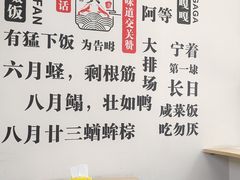 饭
话
FAN
味道交关赞
阿等
嘎嘎
GAGA
有猛下饭
为告咩
大排场
宁着一埭
第一
长菜日
咸吃勿厌
六月蛏，剩根筋
八月鳎，壮如鸭
八月廿三蝤蛑粽